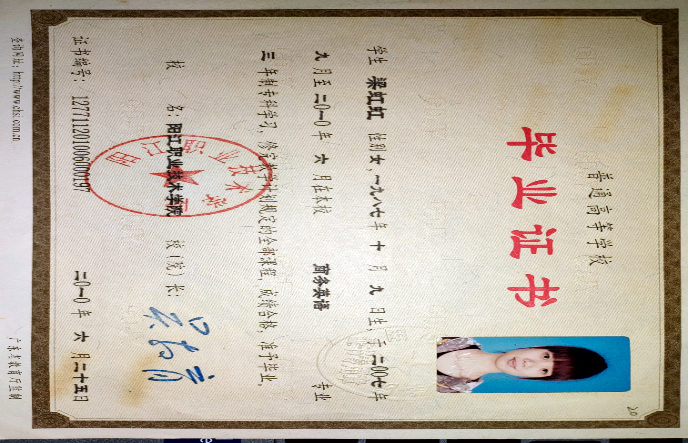 普通高等学校
毕业证书
学生 梁虹虹 性别 女，一九八七年 十 月 九 日生，于 二00七年
九 月至 二0一0年 六 月在本校 商务英语 专业
三 年制专科学习，修完教学计划规定的全部课程，成绩合格，准予毕业。
校 名：阳江职业技术学院 校（院）长：
证书编号：127711201006000197 二0一0年 六 月二十五日
查询网址：http://www.chsi.com.cn 广东省教育厅监制
20